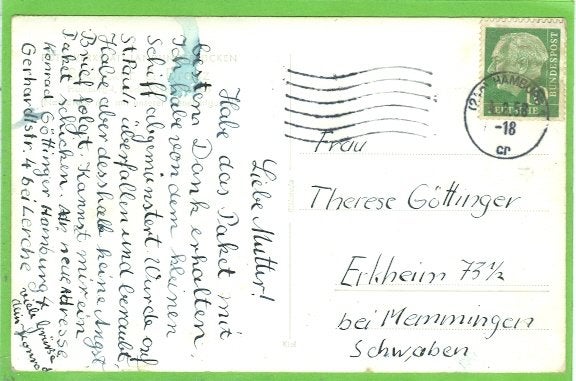 Liebe Mutter!
Habe das Paket mit
bestem Dank erhalten.
Ich habe von dem kleinen
Schiff abgemunstert Wurde auf
St. Pauli überfallen und beraubt.
Habe aber deshalb keine Angst
Brief folgt. Kannst mir ein
Paket schicken. Adr neue Adresse
Konrad Göttinger Hamburg
Gerhardtstr. 4 bei Lerche
viele Grüße
dein Konrad
DEUTSCHE
BUNDESPOST
HAMBURG
-18
cr
Frau
Therese Göttinger
Erkheim 73 1/2
bei Memmingen
Schwaben